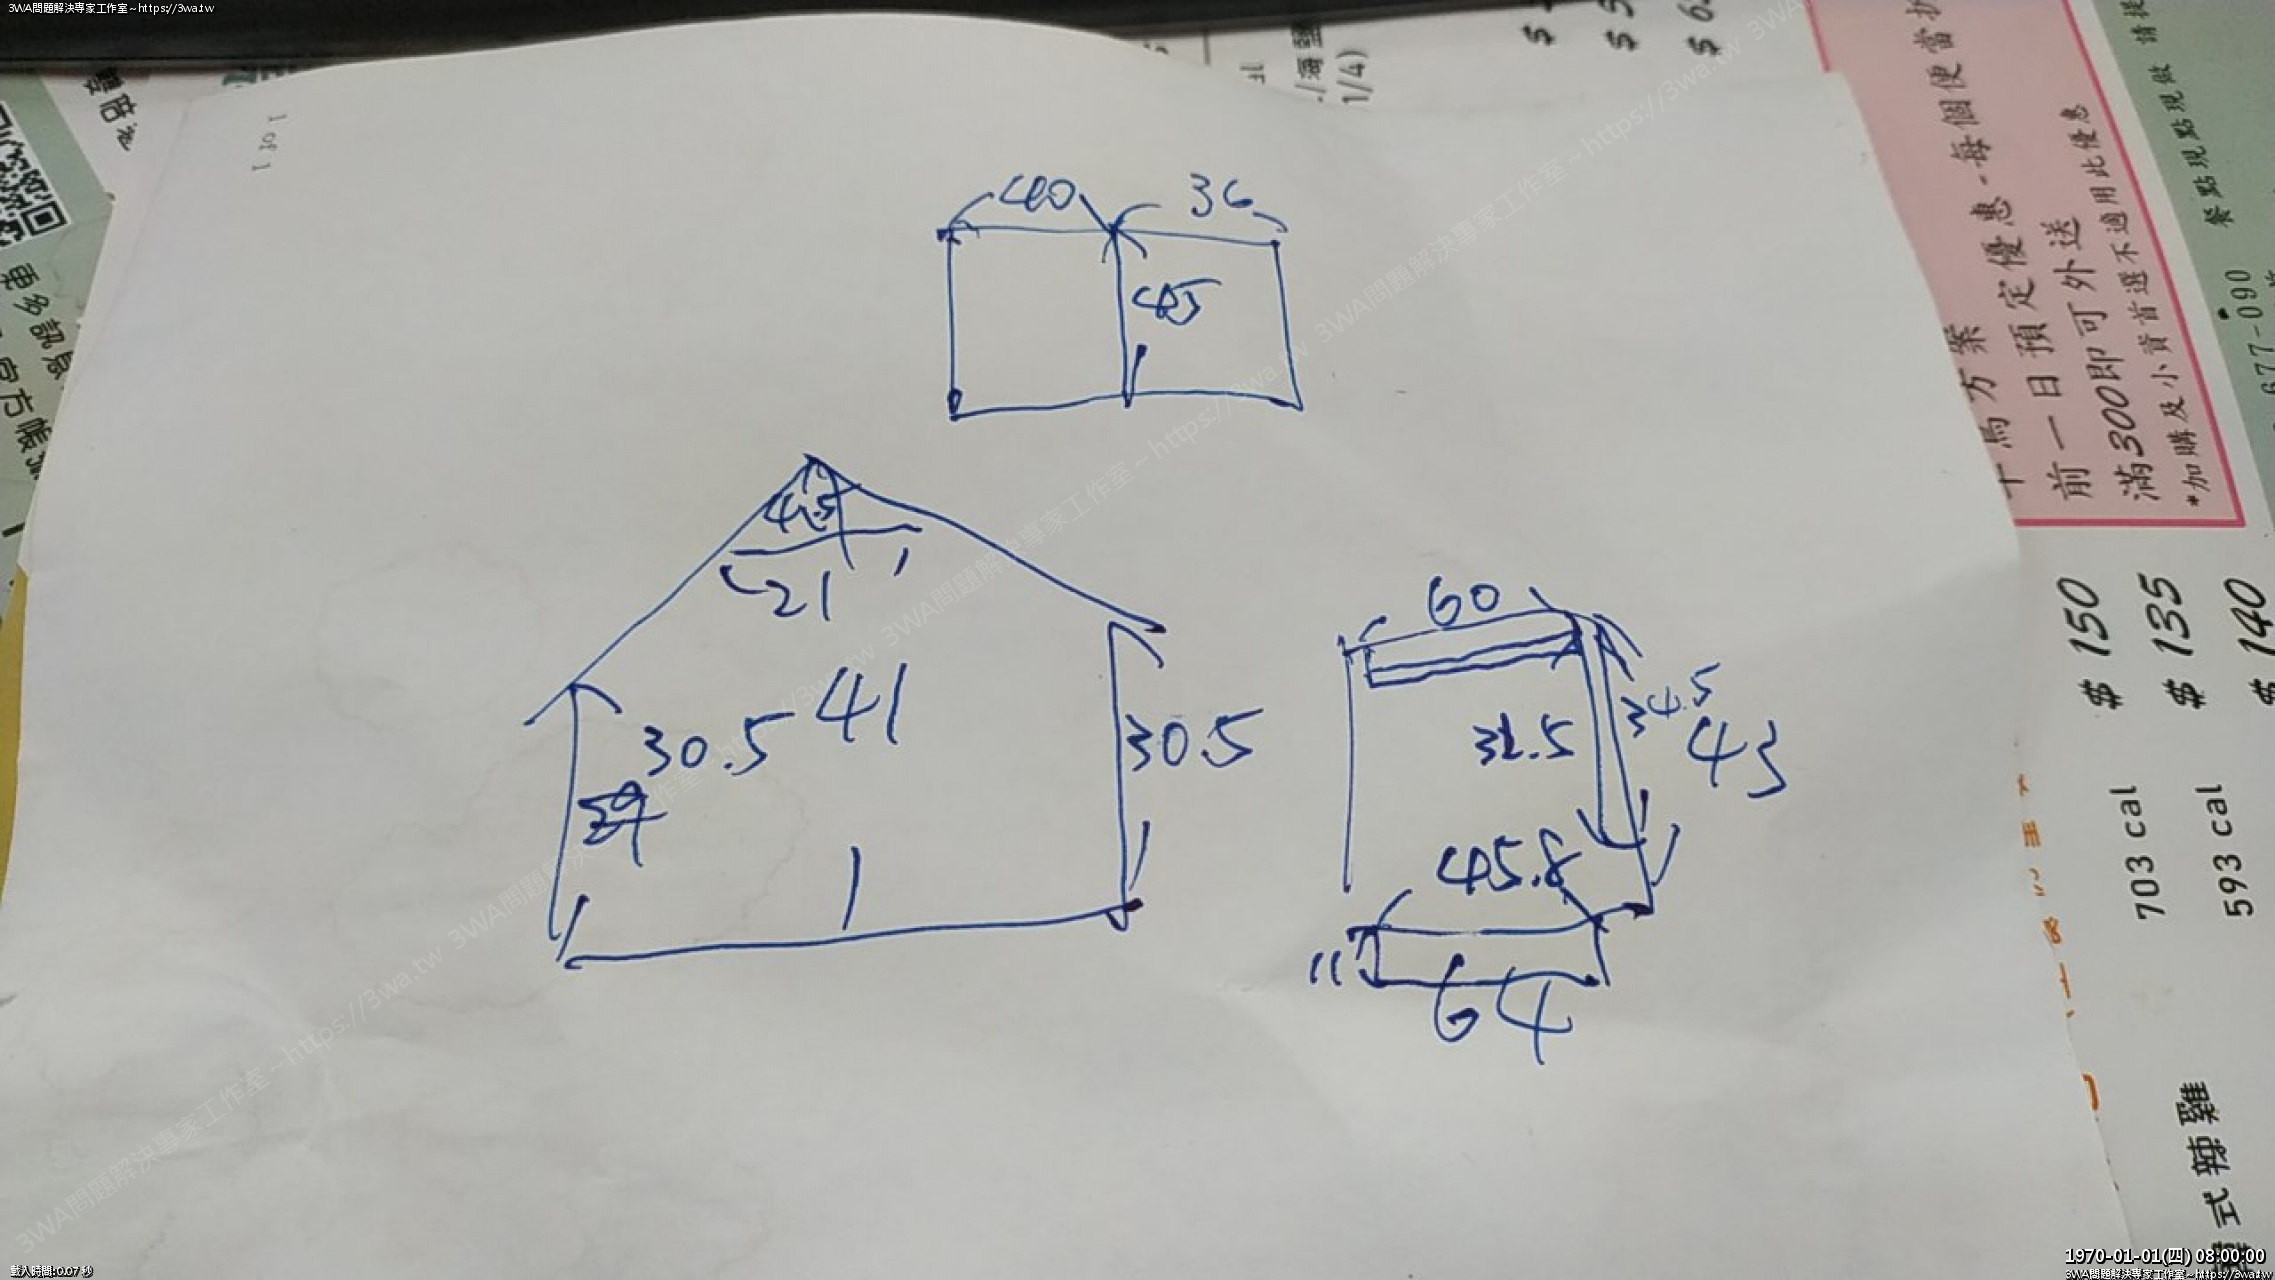 3WA問題解決專家工作室~https://3wa.tw
1 of 1
1/4)
40
36
45
4.5
21
41
30.5
30.5
60
34.5
32.5
43
45.8
11
64
每個便當
前一日預定優惠
滿300即可外送
*加購及小資首選不適用此優惠
餐點現點現做
677-090
更多訊息
官方帳
$ 150
$ 135
$ 140
703 cal
593 cal
式辣雞
載入時間:0.07 秒
1970-01-01(四) 08:00:00
3WA問題解決專家工作室~https://3wa.tw